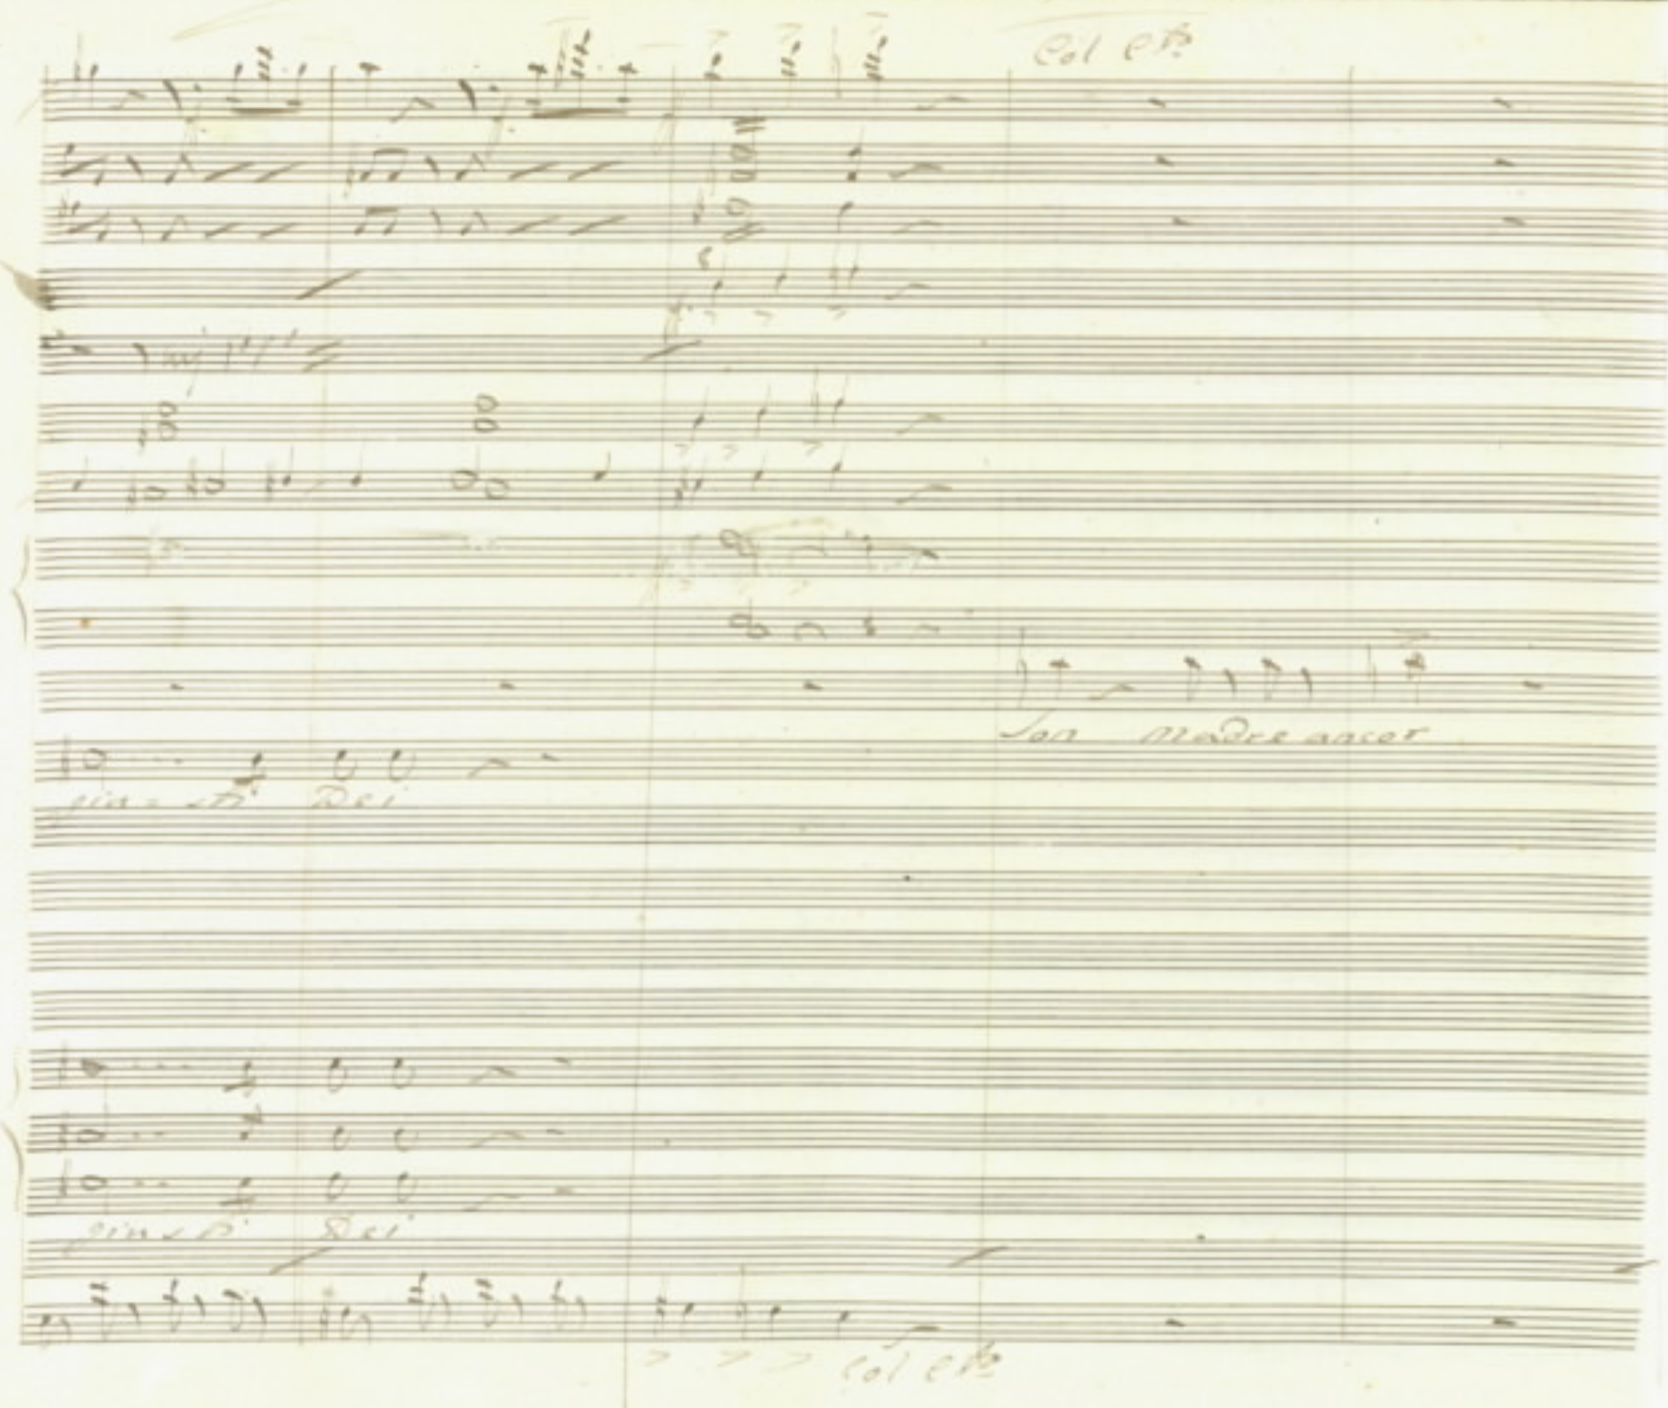 Col C^to
Son madre ancor
giu - sti Dei
giu - sti Dei
Col C^to